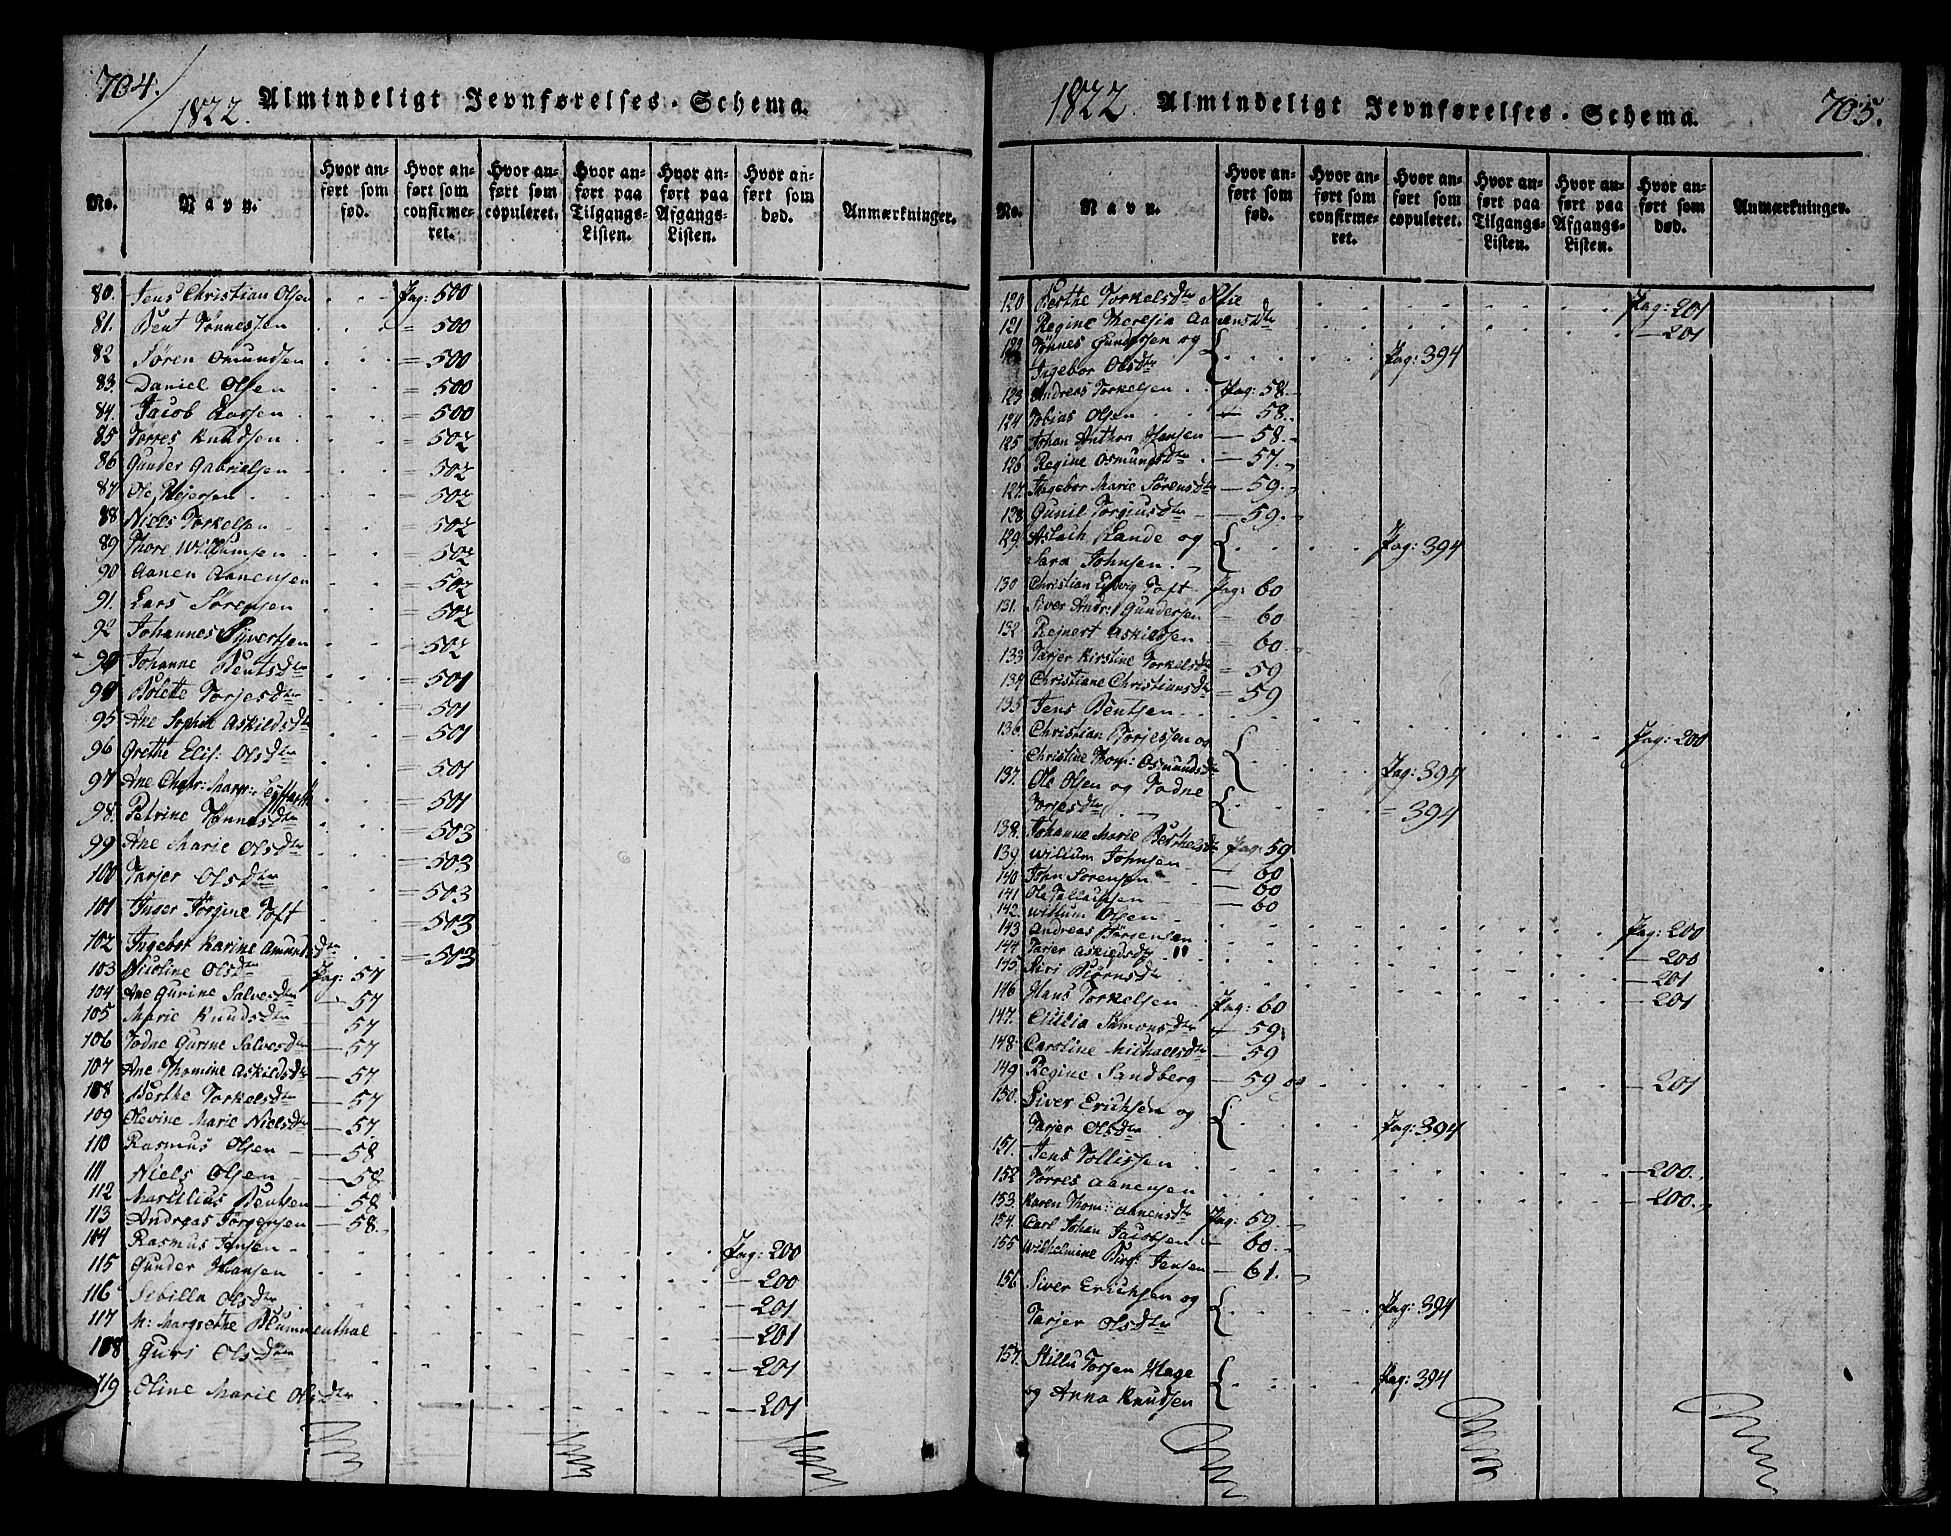 704.
1822. Almindeligt Jevnførelses-Schema.
No. Navn. Hvor anført som fød. Hvor anført som confirmeret. Hvor anført som copuleret. Hvor anført paa Tilgangs-Listen. Hvor anført paa Afgangs-Listen. Hvor anført som død. Anmærkninger.
80. Jens Christian Olsen Pag: 500
81. Bent Tønnessen = 500
82 Søren Omundsen = 500
83. Daniel Olsen = 500
84. Jacob Larsen = 500
85 Torres Knudsen = 502
86 Gunder Gabrielsen = 502
87 Ole Rejersen = 502
88 Niels Torkelsen = 502
89 Thore Willumsen = 502
90 Aanen Aanensen = 502
91. Lars Sørensen = 502
92 Johannes Syvertsen = 502
93 Johanne Bentsdtr = 501
94 Bolette Torjesdtr = 501
95 Ane Sophie Askildsdtr = 501
96 Grethe Elis: Olsdtr = 501
97 Ane Chatr: Marg: = 501
98. Petrine Tønnesdtr = 503
99 Ane Marie Olsdtr = 503
100 Tarjer Olsdtr = 503
101 Inger Jörgine Toft = 503
102 Ingebor Karine Amundsdtr = 503
103 Nicoline Olsdtr Pag: 57
104 Ane Gurine Salvesdtr — 57
105 Marie Knudsdtr 57
106 Todne Gurine Salvesdtr — 57
107 Ane Thomine Askildsdtr — 57
108 Berthe Torkelsdtr — 57
109 Olevine Marie Nielsdtr — 57.
110 Rasmus Olsen — 58
111 Niels Olsen — 58
112 Marcelius Bentsen — 58
113 Andreas Jørgensen — 58.
114 Rasmus Jensen Pag: 200
115 Gunder Hansen — 200
116 Sibilla Olsdtr — 201
117 M: Margrethe Blummenthal — 201
118 Guri Olsdtr — 201
119 Oline Marie Olsdtr — 201
1822 Almindeligt Jevnførelses-Schema. 705.
No. Navn. Hvor anført som fød. Hvor anført som confirmeret. Hvor anført som copuleret. Hvor anført paa Tilgangs-Listen. Hvor anført paa Afgangs-Listen. Hvor anført som død. Anmærkninger.
120 Berthe Torkelsdtr Pag: 201
121 Regine Theresia Aanensdtr — 201
122 Tønnes Gundersen og
Ingebor Olsdtr Pag: 394
123 Andreas Torkelsen Pag: 58.
124 Tobias Olsen — 58.
125 Johan Anthon Hansen — 58.
126 Regine Osmundsdtr — 57.
127. Ingebor Marie Sørensdtr — 59.
128 Gunil Torgiusdtr — 59.
129. Aslach Lande og
Sara Johnsen. Pag: 394
130 Christian Toft Pag: 60
131. Siver Andr: Gundersen = 60
132 Rejnert Askildsen = 60
133 Tarjer Kirstine Torkelsdtr = 59
134 Christiane Christiansdtr — 59
135 Jens Bentsen Pag: 200
136. Christian Torjessen og
Christine Thom: Osmundsdtr Pag: 394
137. Ole Olsen og Todne
Torjesdtr = 394
138. Johanne Marie Berthelsdtr Pag: 59
139 Willum Johnsen — 60
140 John Sørensen — 60
141 Ole — 60
142. Willum Olsen Pag: 200
143 Andreas Jørgensen — 200
144 Tarjer Askildsdtr — 201
145. Siri Biørnsdtr — 201
146 Hans Torkelsen Pag: 60
147. Simonsdtr — 59
148 Caroline Michaelsdtr — 59
149 Regine Sandberg — 59 og — 201
150. Siver Erichsen og
Tarjer Olsdtr Pag: 394
151. Jens Tollissen — 200.
152 Tørres Aanensen — 200.
153. Karen Thom: Aanensdtr Pag: 59.
154. Carl Johan Jacobsen — 60.
155 Wilhelmine Birg: Jensen — 61.
156 Siver Erichsen og
Tarjer Olsdtr Pag: 394
157. Torsen Hage
og Anna Knudsen Pag: 394